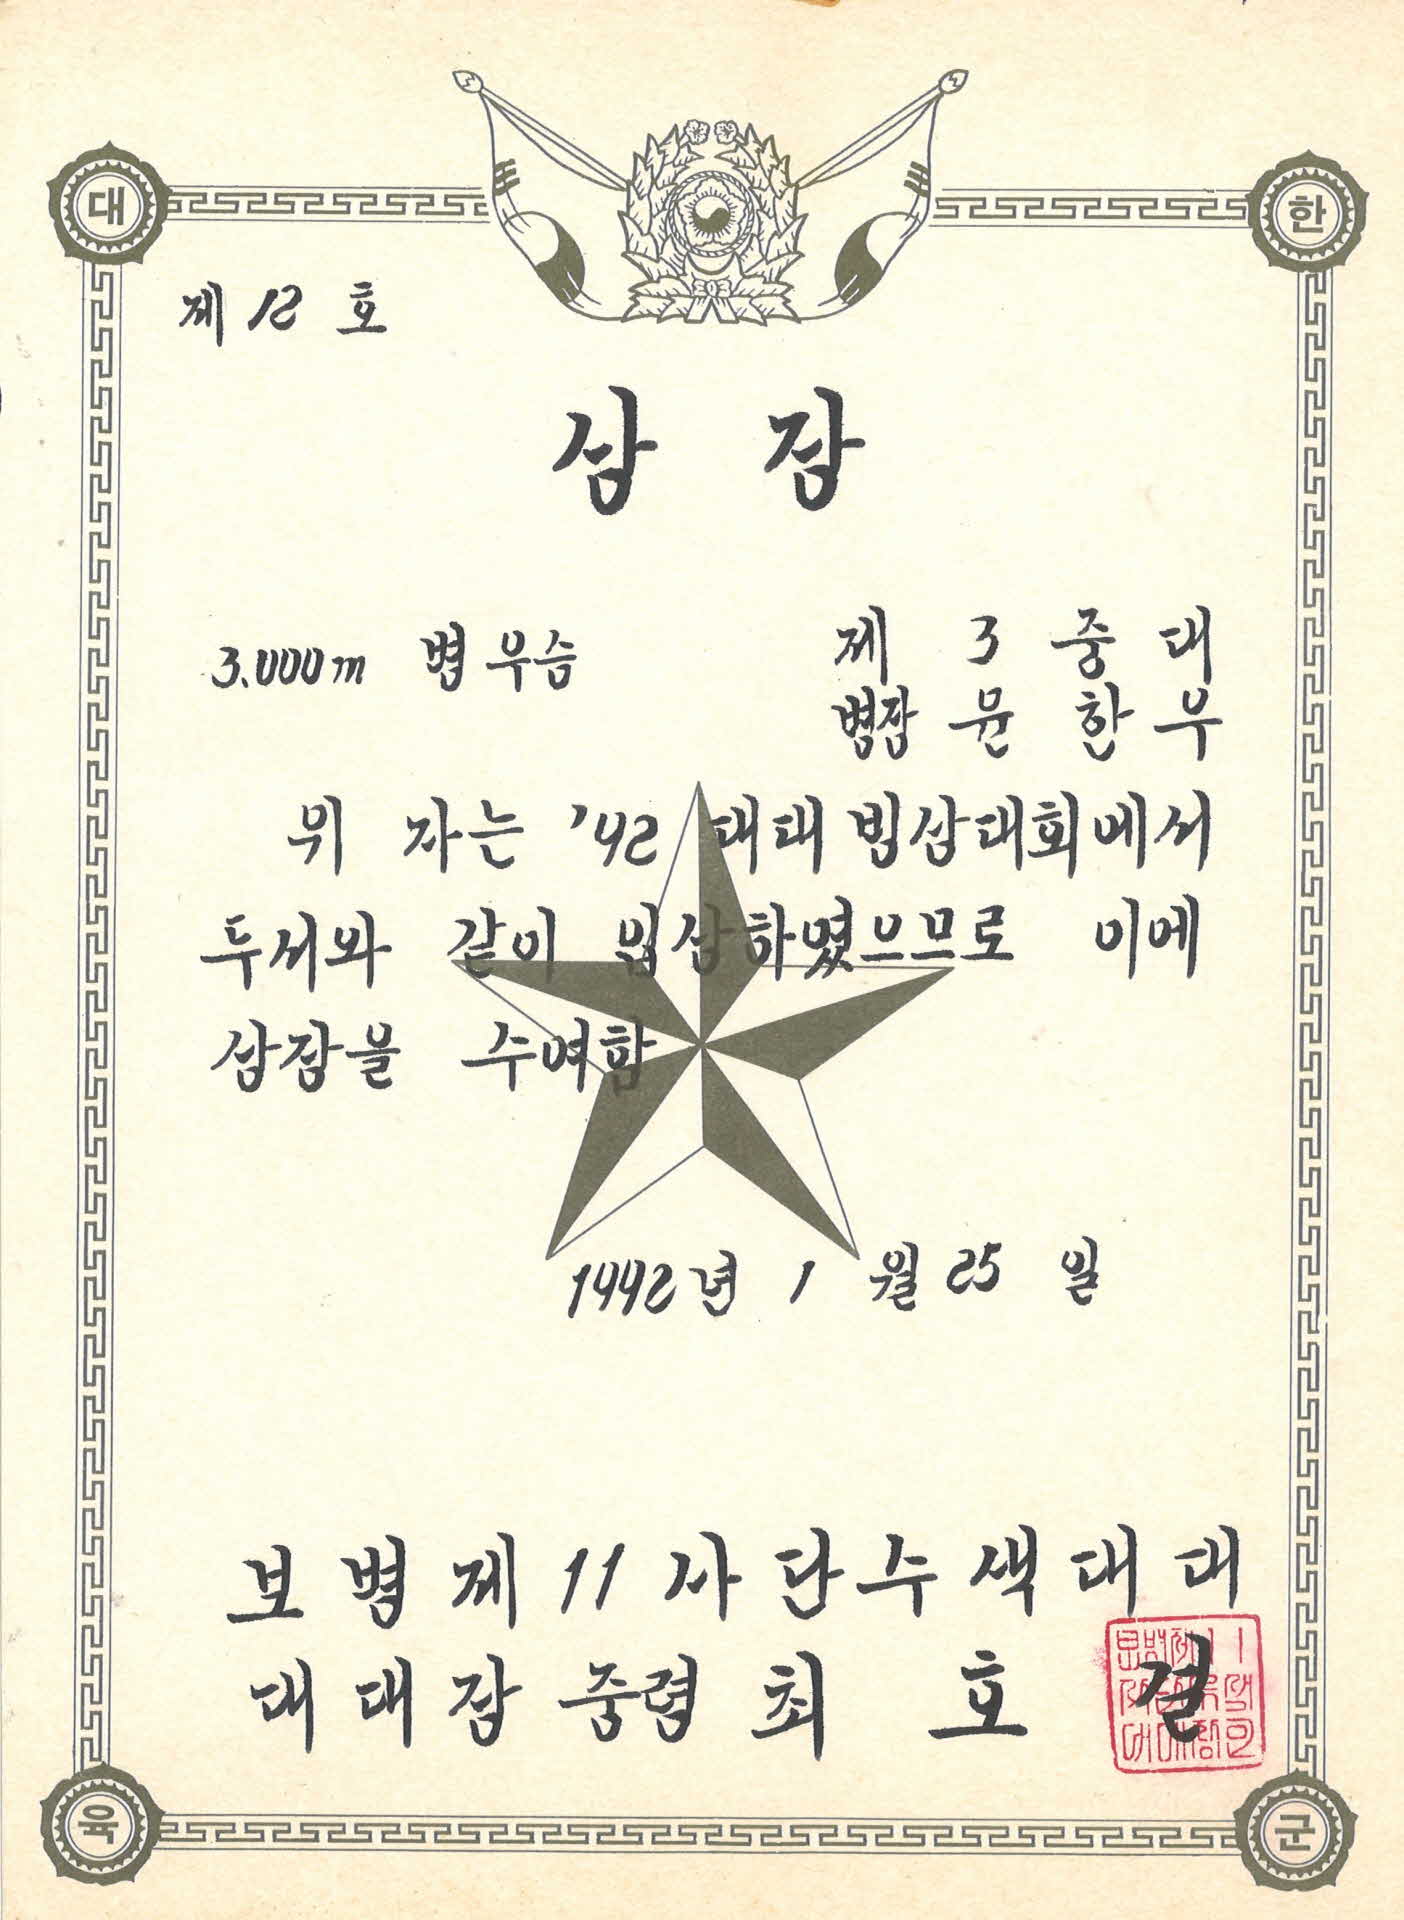 대 한
제 12 호
상 장
3.000m 병우승 제 3 중 대
병장 윤 한 우
위 자는 '92 대대 빙상대회에서
두서와 같이 입상하였으므로 이에
상장을 수여함
1992년 1 월 25 일
보 병 제 11 사 단 수 색 대 대
대 대 장 중령 최 호 결
육 군